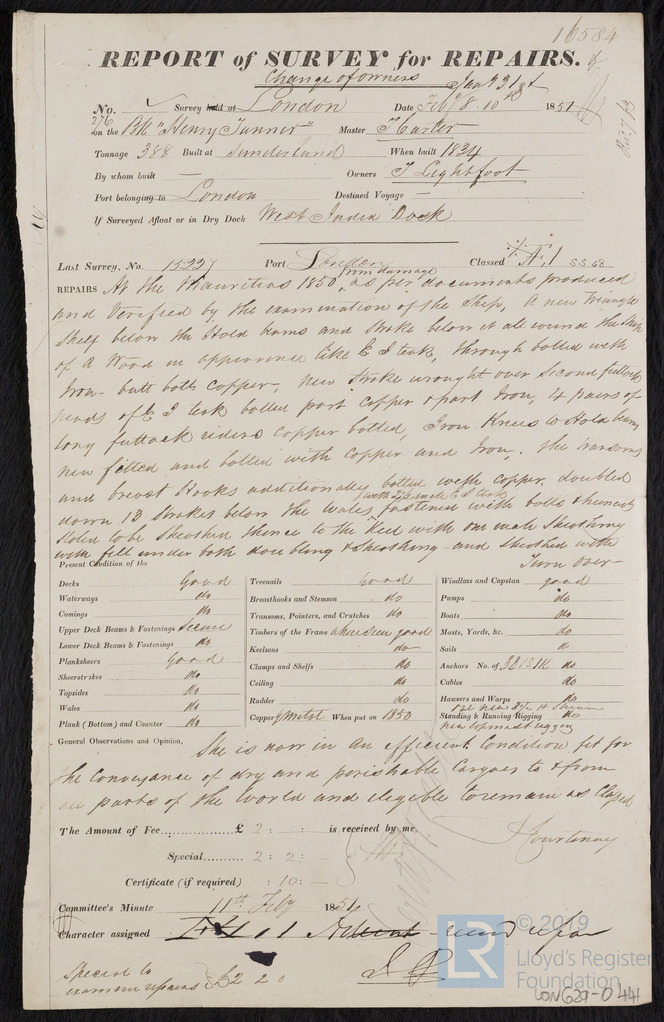 16584
REPORT of SURVEY for REPAIRS.
Change of owners
Jany 31st
No. 276 Survey held at London Date Feb 8. 10th 1851
on the Bk "Henry Tanner" Master J Carter
Tonnage 388 Built at Sunderland When built 1834
By whom built — Owners J Lightfoot
Port belonging to London Destined Voyage —
If Surveyed Afloat or in Dry Dock West India Dock
Last Survey, No. 15227 Port London Classed Æ 1
REPAIRS At the Mauritius 1850, from damage as per documents produced
and verified by the examination of the Ship, a new triangle
Shelf below the Hold beams and Stroke below it all round the Ship
of a Wood in appearance like E I teak, through bolted with
Iron - butt bolts copper, new Stroke wrought over Second futtock
heads of E I teak bolted part copper & part Iron, 4 pairs of
long futtock riders copper bolted, Iron Knees to Hold beams
new fitted and bolted with copper and Iron. The transoms
and breast Hooks additionally bolted with copper, doubled
down 13 Strokes below the Wales, with inch E I teak fastened with bolts &
to be Sheathed thence to the Keel with one inch Sheathing
with felt under both doubling & Sheathing and Sheathed with
Turn Over
Present Condition of the
Decks Good
Waterways do
Comings do
Upper Deck Beams & Fastenings Secure
Lower Deck Beams & Fastenings do
Planksheers Good
Sheerstrakes do
Topsides do
Wales do
Plank (Bottom) and Counter do
Treenails Good
Breasthooks and Stemson do
Transoms, Pointers, and Crutches do
Timbers of the Frame where seen good
Keelsons do
Clamps and Shelfs do
Ceiling do
Rudder do
Copper y Metal When put on 1850
Windlass and Capstan good
Pumps do
Boats do
Masts, Yards, &c. do
Sails
Anchors No. of 3B 1S 1K do
Cables do
Hawsers and Warps do
Standing & Running Rigging do
new topmast rigging
General Observations and Opinion, She is now in an efficient Condition fit for
the Conveyance of dry and perishable Cargoes to & from
all parts of the World and eligible to remain as Classed
The Amount of Fee £ 2 : - : is received by me,
Courtenay
Special 2 : 2 : —
Certificate (if required) : 10 : —
Committee's Minute 11th Feby 1851
Character assigned
Special to
examine repairs £2 2 0
LR
© 2019
Lloyd's Register
Foundation
LON629-0441